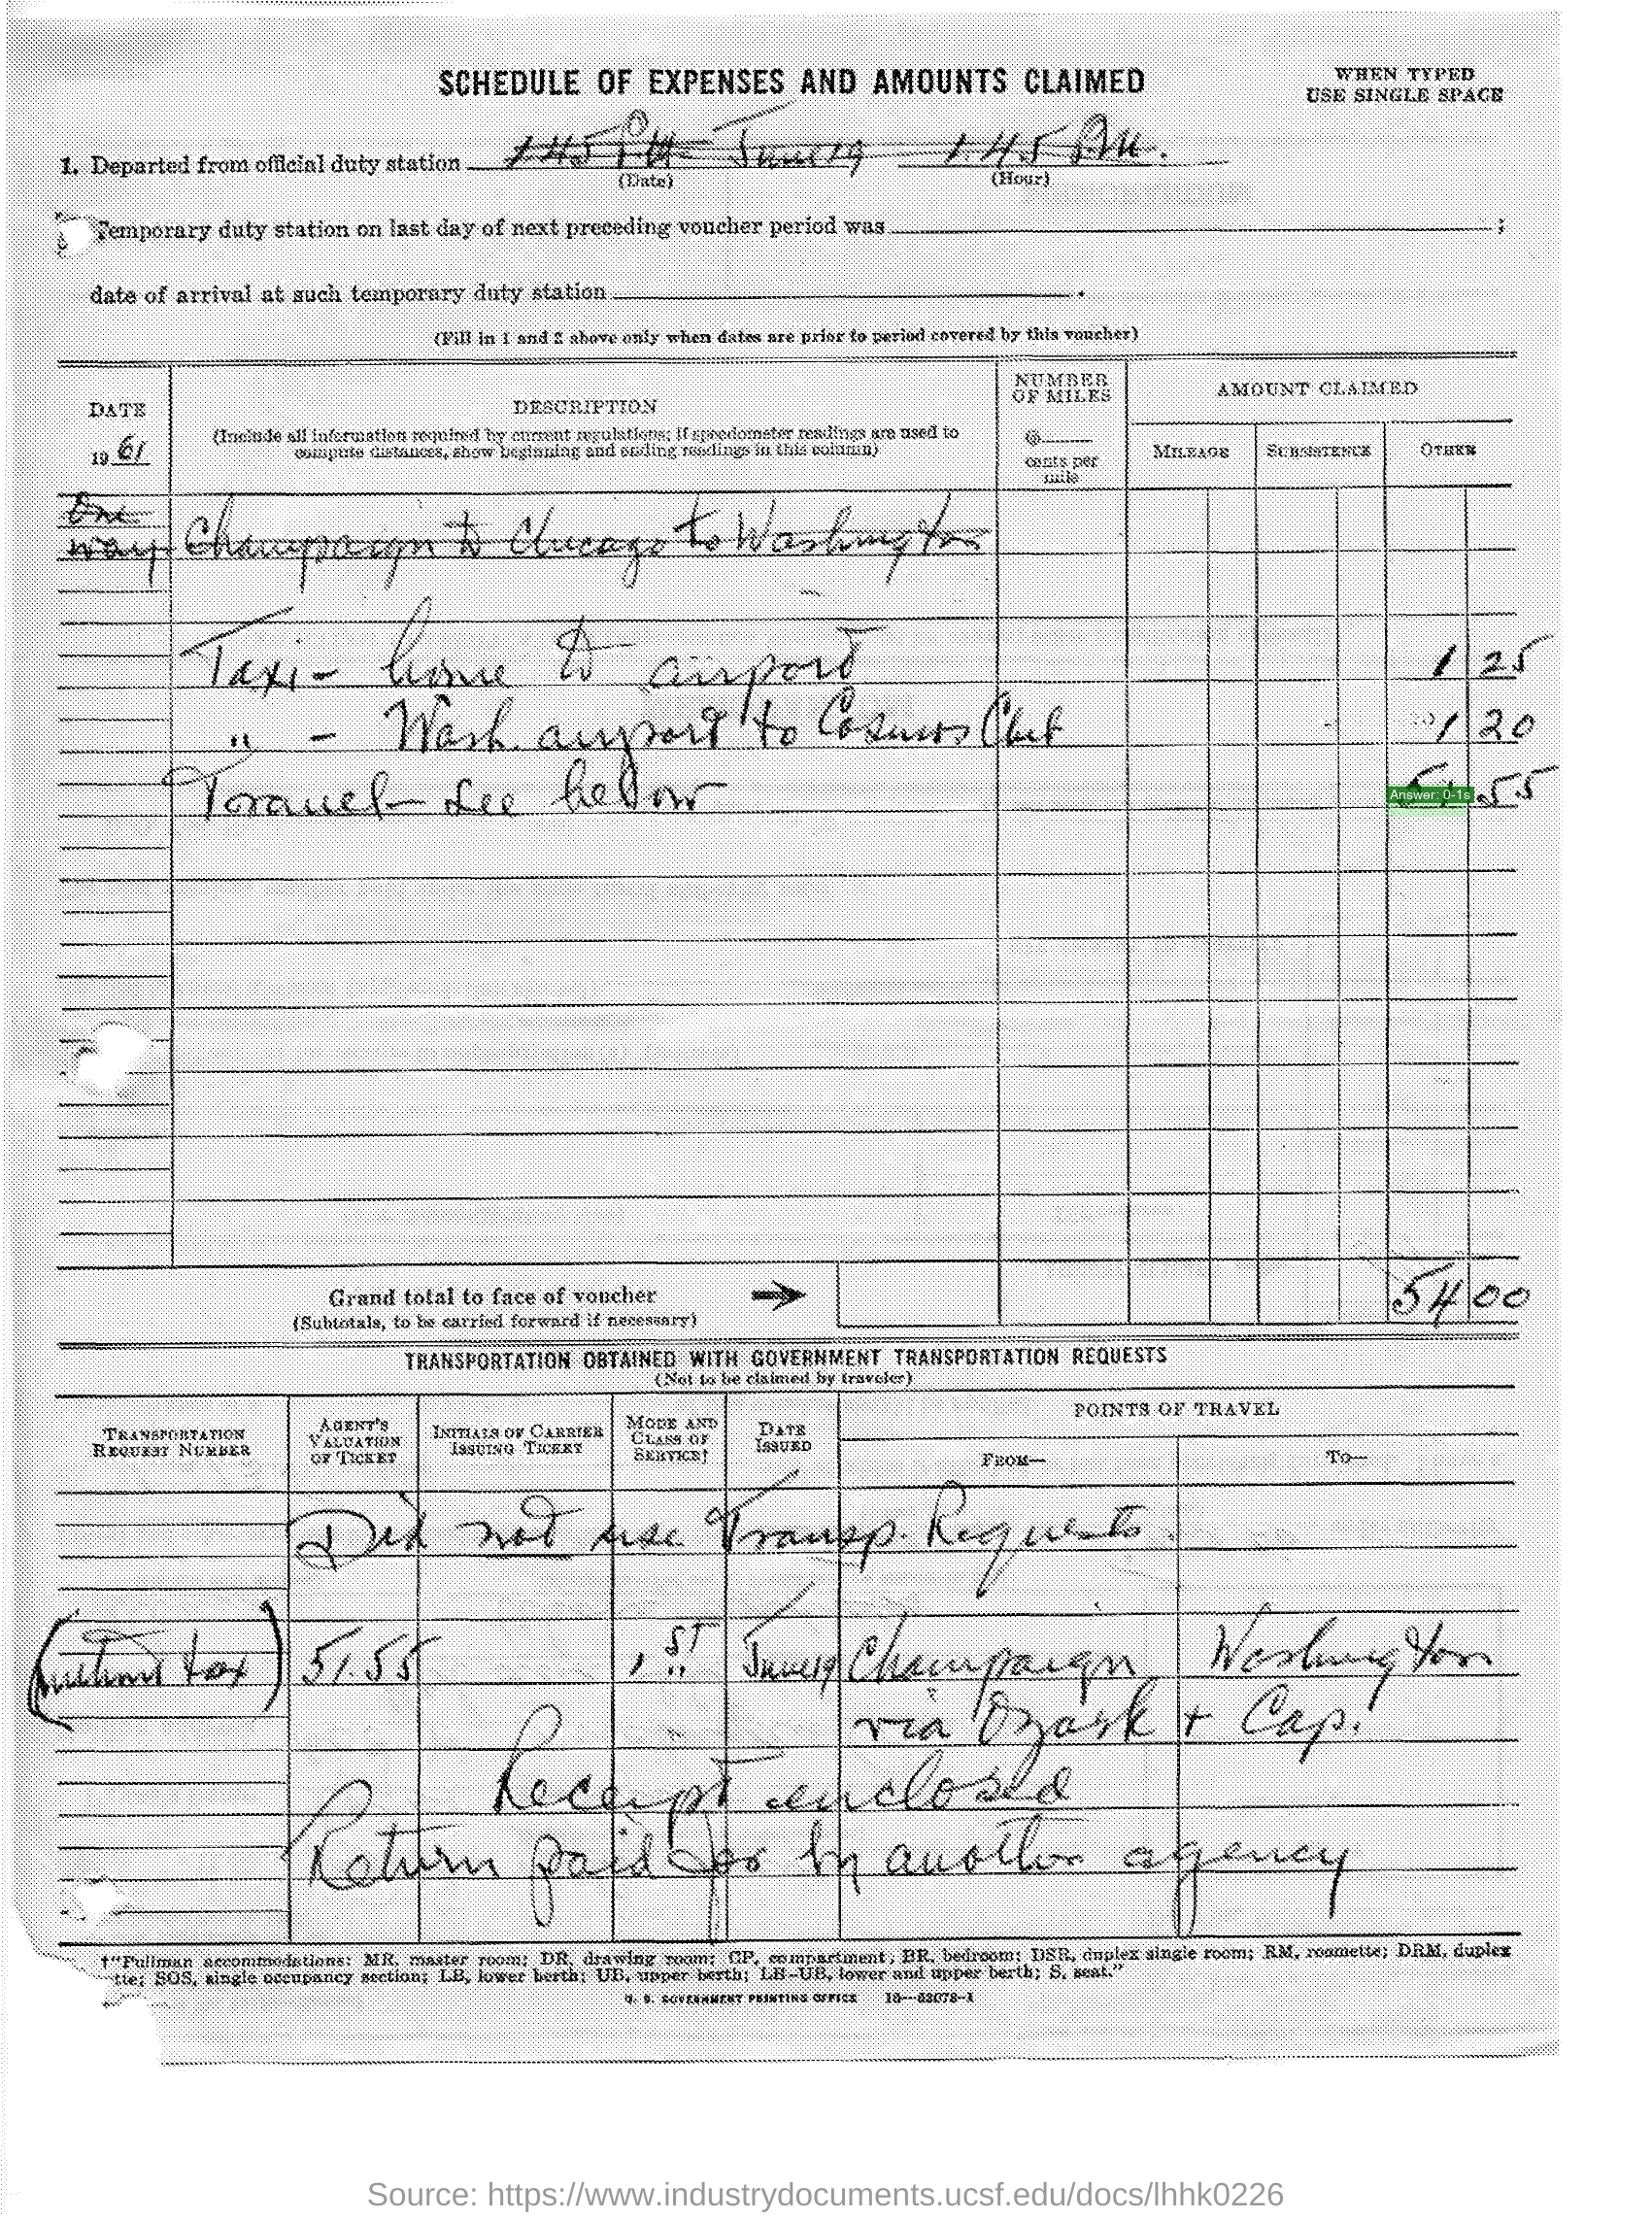 SCHEDULE OF EXPENSES AND AMOUNTS CLAIMED
WHEN TYPED
USE SINGLE SPACE
1. Departed from official duty station 1 45 PM June 19 1.45 P.M.
(Date) (Hour)
Temporary duty station on last day of next preceding voucher period was ;
date of arrival at such temporary duty station .
(Fill in 1 and 2 above only when dates are prior to period covered by this voucher)
DATE
19 61
DESCRIPTION
(Include all information required by current regulations; if speedometer readings are used to
compute distances, show beginning and ending readings in this column)
NUMBER
OF MILES
@
cents per
mile
AMOUNT CLAIMED
MILEAGE SUBSISTENCE OTHER
One
way Champaign to Chicago to Washington
Taxi - home to airport 1 25
" - Wash. airport to Cosmos Club 1 20
Travel - See below .55
Answer: 0-1s
Grand total to face of voucher 54 00
(Subtotals, to be carried forward if necessary)
TRANSPORTATION OBTAINED WITH GOVERNMENT TRANSPORTATION REQUESTS
(Not to be claimed by traveler)
TRANSPORTATION
REQUEST NUMBER
AGENT'S
VALUATION
OF TICKET
INITIALS OF CARRIER
ISSUING TICKET
MODE AND
CLASS OF
SERVICE†
DATE
ISSUED
POINTS OF TRAVEL
FROM— TO—
Did not use Transp. Requests.
( tax) 51.55 1st June 19 Champaign Washington
via Ozark + Cap.
Receipt enclosed
Return paid for by another agency
†"Pullman accommodations: MR, master room; DR, drawing room; CP, compartment, BR, bedroom; DSR, duplex single room; RM, roomette; DRM, duplex
tte; SOS, single occupancy section; LB, lower berth; UB, upper berth; LB-UB, lower and upper berth; S, seat."
U. S. GOVERNMENT PRINTING OFFICE 16—53078-1
Source: https://www.industrydocuments.ucsf.edu/docs/lhhk0226